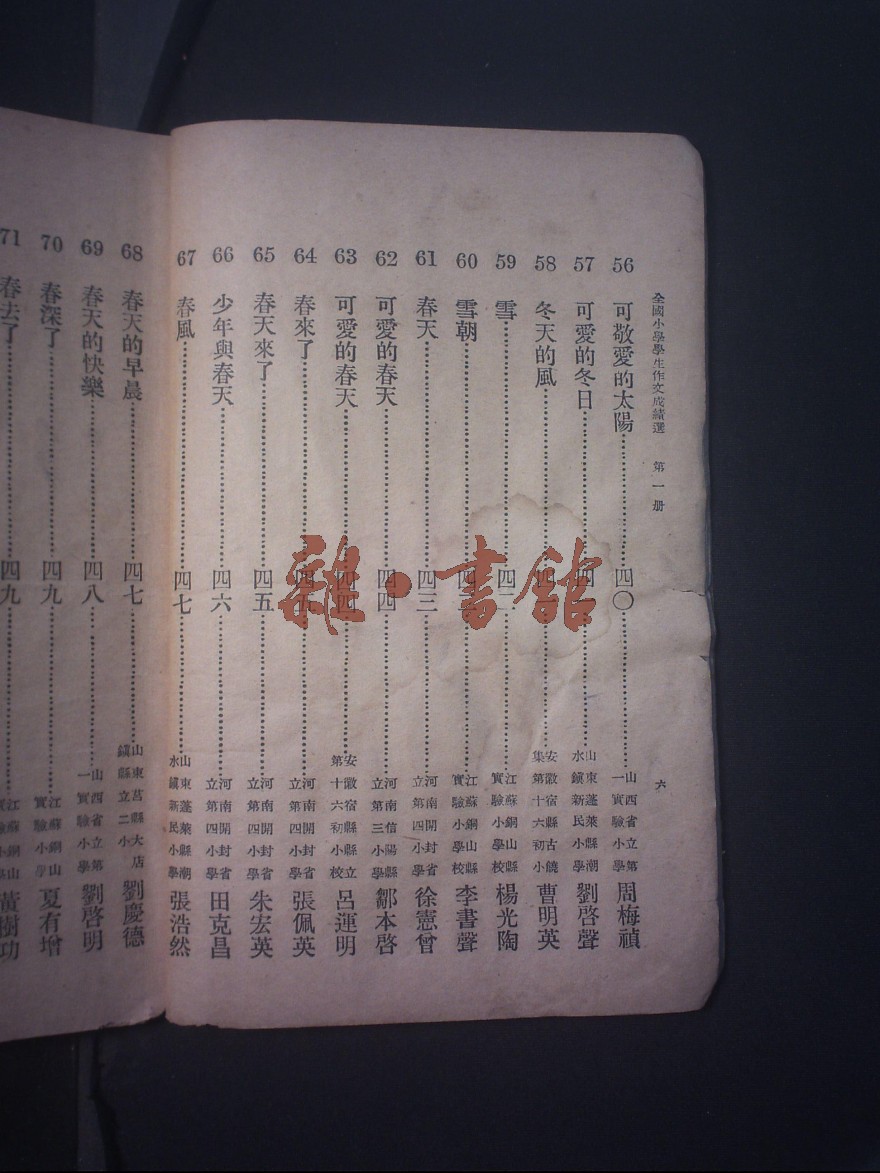 全國小學學生作文成績選 第一册
六
56 可敬愛的太陽 四〇 山西省立第一實驗小學 周梅禎
57 可愛的冬日 四一 山東蓬萊縣潮水鎮新民小學 劉啓聲
58 冬天的風 四 安徽宿縣古饒集第十六初小 曹明英
59 雪 四二 江蘇銅山縣實驗小學校 楊光陶
60 雪朝 四 江蘇銅山縣實驗小學校 李書聲
61 春天 四三 河南開封省立第四小學 徐憲曾
62 可愛的春天 四四 河南信陽縣立第三小學 鄒本啓
63 可愛的春天 四四 安徽宿縣縣立第十六初小校 呂運明
64 春來了 四五 河南開封省立第四小學 張佩英
65 春天來了 四五 河南開封省立第四小學 朱宏英
66 少年與春天 四六 河南開封省立第四小學 田克昌
67 春風 四七 山東蓬萊縣潮水鎮新民小學 張浩然
68 春天的早晨 四七 山東莒縣大店鎮縣立二小 劉慶德
69 春天的快樂 四八 山西省立第一實驗小學 劉啓明
70 春深了 四九 江蘇銅山實驗小學 夏有增
71 春去了 四九 江蘇銅山實驗小學 黃樹功
雜·書館